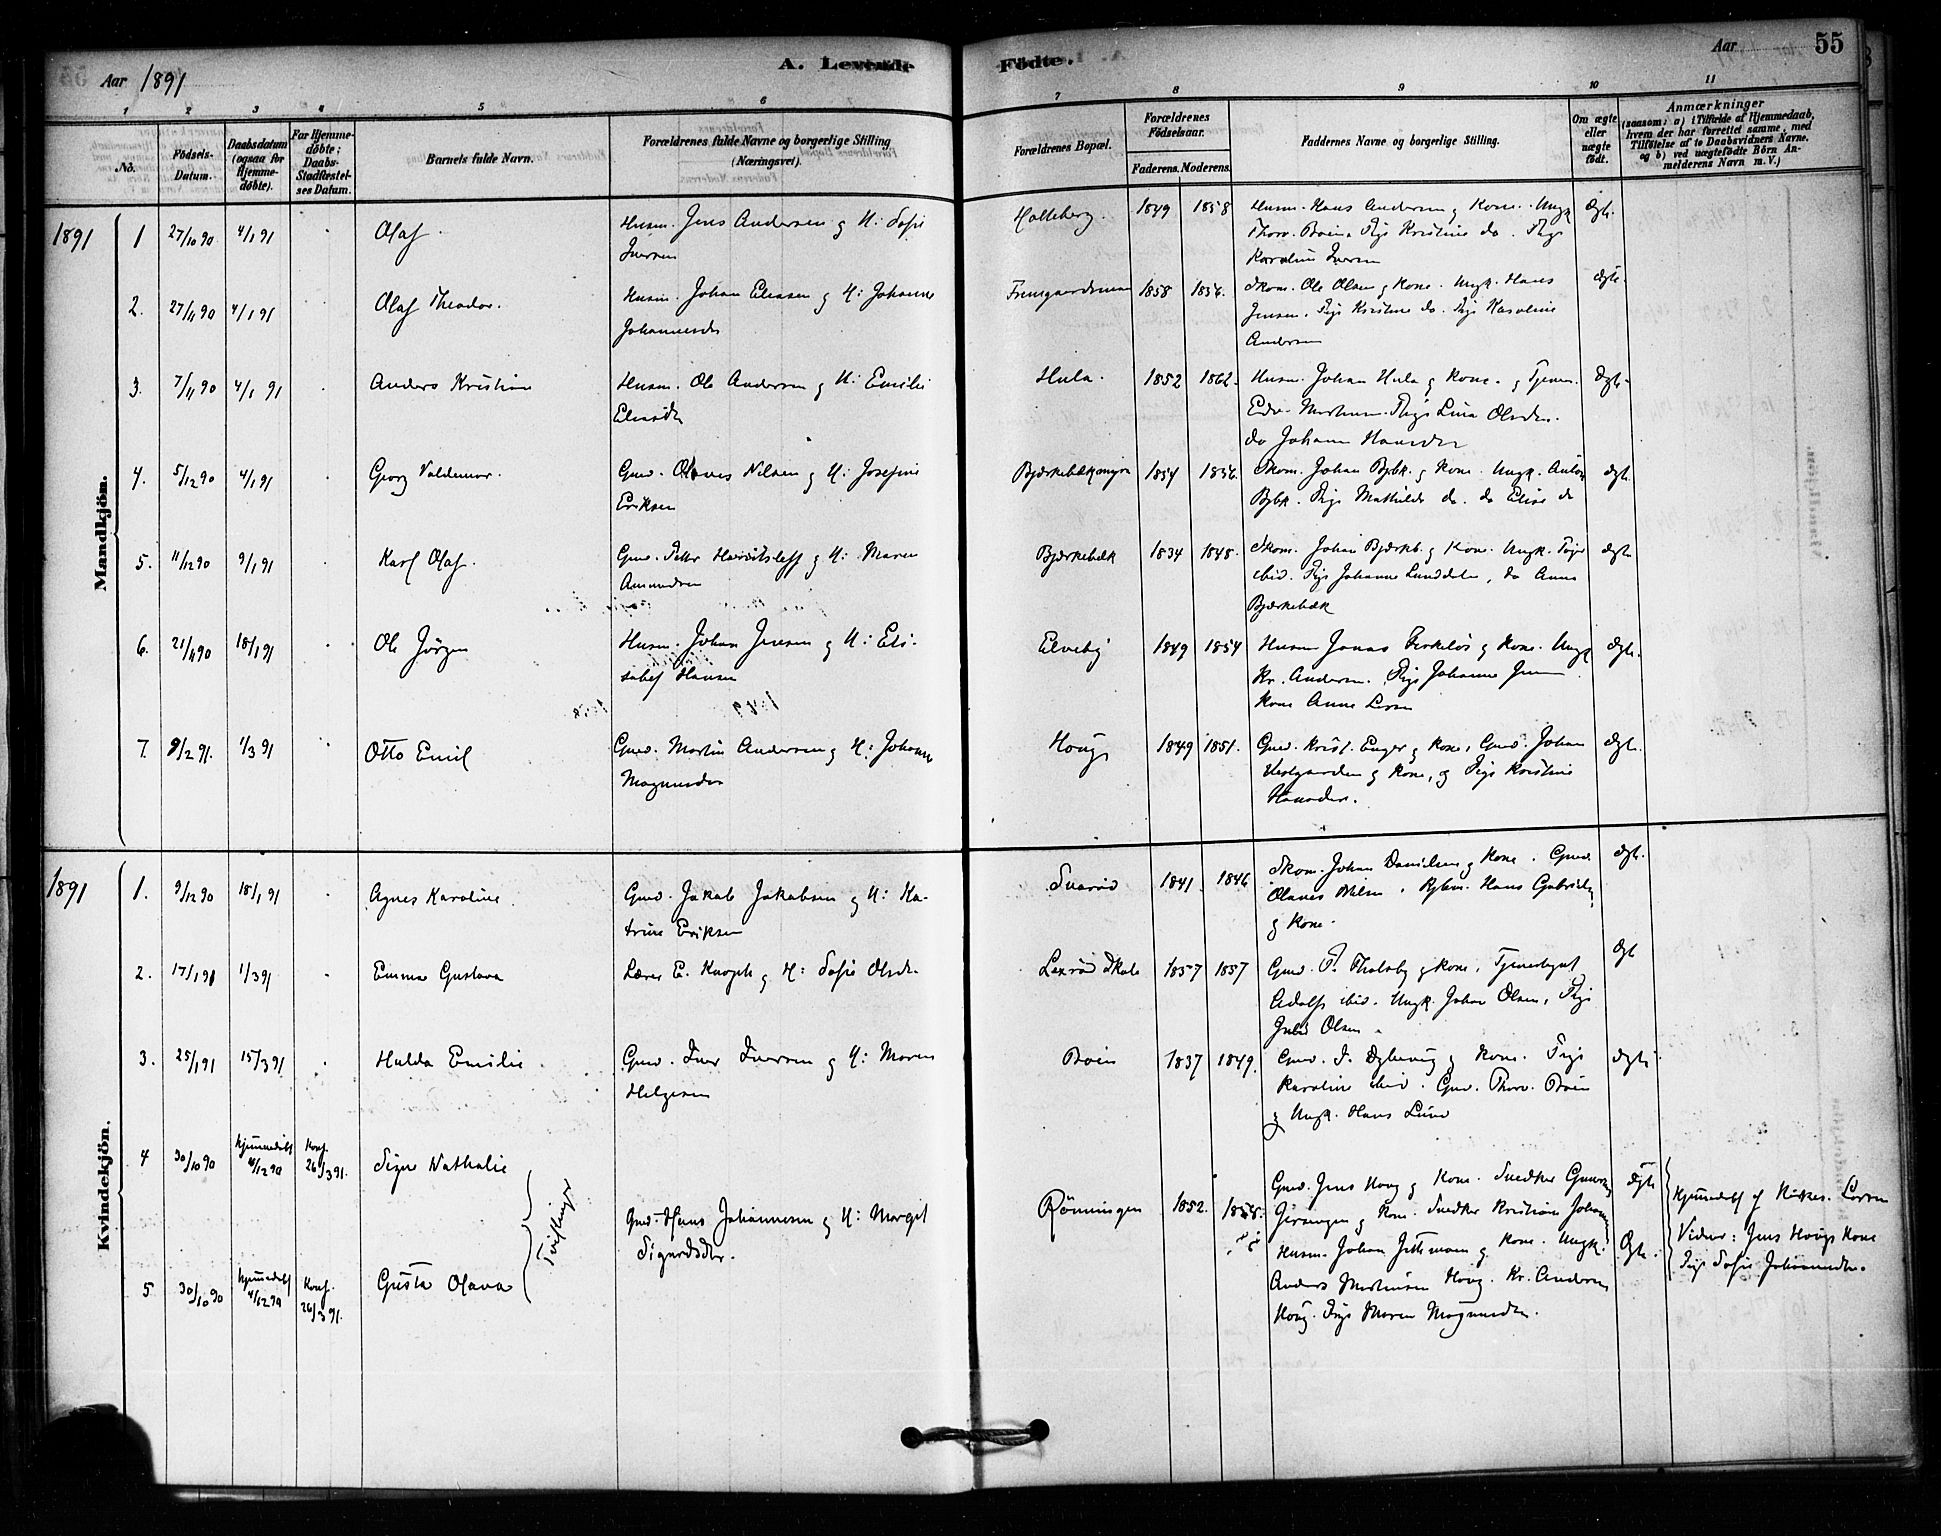 Aar 1891
A. Levende
Fødte.
Aar
55
1 2 3 4 5 6 7 8 9 10 11
No.
Fødsels-
Datum.
Daabsdatum
(ogsaa for
Hjemme-
døbte).
For Hjemme-
døbte;
Daabs-
Stadfæstel-
ses Datum.
Barnets fulde Navn.
Forældrenes fulde Navne og borgerlige Stilling
(Næringsvei).
Forældrenes Bopæl.
Forældrenes
Fødselsaar.
Faderens. Moderens.
Faddernes Navne og borgerlige Stilling.
Om ægte
eller
uægte
født.
Anmærkninger
(saasom: a) i Tilfælde af Hjemmedaab,
hvem der har forrettet samme, med
Tilføielse af to Daabsvidners Navne.
og b) ved uægtefødte Børn An-
melderens Navn m. V.)
Mandkjön.
1891 1 27/10 90 4/1 91 Olaf.
Husm. Jens Andersen og H: Sofie
Iversen
Holteberg. 1849 1858
Husm. Hans Andersen og Kone. Ungk
Thorv. Boien. Pige Kristine do. Pige
Karoline Iversen
Ægte.
2. 27/11 90 4/1 91 Olaf Theodor.
Husm. Johan Eliasen og H: Johanne
Johannesdr
1858 1856.
Skom. Ole Olsen og Kone. Ungk. Hans
Jensen. Pige Kristine do. Pige Karoline
Andersen
Ægte.
3. 7/11 90 4/1 91 Anders Kristian
Husm. Ole Andersen og H: Emilie
Eliasdtr
Hula. 1852 1862.
Husm. Johan Hula og Kone. og Tjener
Edv. Pige Lina Olsdtr.
do Johanne Hansdtr
Ægte.
4. 5/12 90 4/1 91 Georg Valdemar.
Gmd. Olaves Nilsen og H: Josefine
Eriksen
Bjærkebækmyra 1854 1856.
Skom. Johan Bjbk. og Kone. Ungk. Anton
Bjbk. Pige Mathilde do. do Elise do
Ægte.
5. 11/12 90 9/1 91 Karl Olaf.
Gmd. Petter og H: Maren
Amundsen
Bjærkebæk 1834 1848.
Skom. Johan Bjærkb. og Kone. Ungk.
ibid. Pige Johanne, do Anna
Bjærkebæk
Ægte
6. 21/11 90 18/1 91 Ole Jörgen
Husm. Johan Jensen og H: Eli-
sabet Hansen
Elveby 1849 1854
Husm Jonas og Kone. Ungk
Kr. Andersen. Pige Johanne
Kone Anne
Ægte.
7. 9/2 91. 1/3 91 Otto Emil
Gmd. Martin Andersen og H: Johanne
Magnusdtr
Houg 1849 1851.
Gmd. Krist. Enger og Kone, Gmd. Johan
Vestgaarden og Kone, og Pige Kristine
Hansdtr.
Ægte.
Kvindekjön.
1891 1. 9/12 90 18/1 91 Agnes Karoline.
Gmd. Jakob Jakobsen og H: Ka-
trine Eriksen
1841 1846
Skom. Johan Danielsen og Kone. Gmd.
Olaves Nilsen. Hans Gabrielsen
og Kone.
Ægte.
2. 17/1 91 1/3 91 Emma Gustava
Lærer E. Knoph og H: Sofie Olsdtr.
Lexrød Skole 1857 1857
Gmd. P. Tholsby og Kone,
Adolf ibid. Ungk. Johan Olsen, Pige
Julie Olsen.
Ægte
3. 25/1 91 15/3 91 Hulda Emilie
Gmd. Iver Iversen og H: Maren
Helgesen
Boien 1837 1849.
Gmd. I. og Kone. Pige
Karoline ibid. Gmd. Thorv. Boien
og Ungk. Hans Lund
Ægte
4 30/10 90 Hjemmedøbt 4/12 90 Konf. 26/3 91. Signe Nathalie
5 30/10 90 Hjemmedøbt 4/12 90 Konf. 26/3 91. Gusta Olava
Tvillinger
Gmd. Hans Johannesen og H: Margit
Sigurdsdtr.
Rönningen 1852.
Gmd. Jens Houg og Kone. Snedker
og Kone. Snedker Kristian
Husm. Johan og Kone. Ungk.
Anders Martinsen Houg. Kr. Andersen
Houg. Pige Maren Magnusdtr.
Ægte
Ægte.
Hjemmedøbt af
Vidner: Jens Hougs Kone
Pige Sofie Johannesdtr.